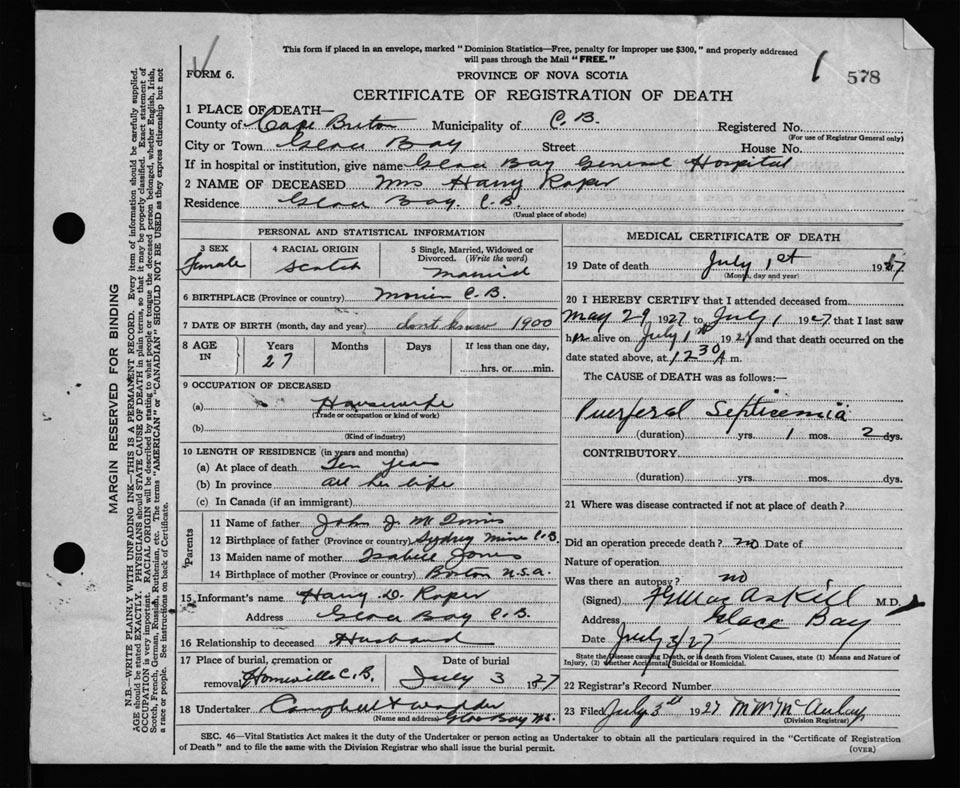 This form if placed in an envelope, marked "Dominion Statistics—Free, penalty for improper use $300," and properly addressed
will pass through the Mail "FREE."
FORM 6.
PROVINCE OF NOVA SCOTIA
1 578
CERTIFICATE OF REGISTRATION OF DEATH
1 PLACE OF DEATH—
County of Cape Breton Municipality of C.B. Registered No.
(For use of Registrar General only)
City or Town Glace Bay Street House No.
If in hospital or institution, give name Glace Bay General Hospital
2 NAME OF DECEASED Mrs Harry Roper
Residence Glace Bay C.B.
(Usual place of abode)
PERSONAL AND STATISTICAL INFORMATION
3 SEX 4 RACIAL ORIGIN 5 Single, Married, Widowed or Divorced. (Write the word)
Female Scotch Married
6 BIRTHPLACE (Province or country) Morien C.B.
7 DATE OF BIRTH (month, day and year) dont know 1900
8 AGE IN Years Months Days If less than one day,
27 hrs. or min.
9 OCCUPATION OF DECEASED
(a) Housewife
(Trade or occupation or kind of work)
(b)
(Kind of industry)
10 LENGTH OF RESIDENCE (in years and months)
(a) At place of death Ten years
(b) In province all her life
(c) In Canada (if an immigrant)
Parents
11 Name of father John J. McInnis
12 Birthplace of father (Province or country) Sydney Mines C.B.
13 Maiden name of mother Isabell Jones
14 Birthplace of mother (Province or country) Boston U.S.A.
15 Informant's name Harry D. Roper
Address Glace Bay C.B.
16 Relationship to deceased Husband
17 Place of burial, cremation or Date of burial
removal Homeville C.B. July 3 1927
18 Undertaker Campbell &
(Name and address) Glace Bay N.S.
MEDICAL CERTIFICATE OF DEATH
19 Date of death July 1st 1927
(Month, day and year)
20 I HEREBY CERTIFY that I attended deceased from
May 29 1927 to July 1 1927 that I last saw
her alive on July 1st 1927 and that death occurred on the
date stated above, at 12 30 A m.
The CAUSE of DEATH was as follows:—
Puerferal Septicemia
(duration) yrs. 1 mos. 2 dys.
CONTRIBUTORY
(duration) yrs. mos. dys.
21 Where was disease contracted if not at place of death?
Did an operation precede death? no Date of
Nature of operation
Was there an autopsy? no
(Signed) MacAskill M.D.
Address Glace Bay
Date July 3/27
State the Disease causing Death, or in death from Violent Causes, state (1) Means and Nature of
Injury, (2) whether Accidental, Suicidal or Homicidal.
22 Registrar's Record Number
23 Filed July 3rd 1927 M.W. McAulay
(Division Registrar)
SEC. 46—Vital Statistics Act makes it the duty of the Undertaker or person acting as Undertaker to obtain all the particulars required in the "Certificate of Registration
of Death" and to file the same with the Division Registrar who shall issue the burial permit. (OVER)
MARGIN RESERVED FOR BINDING
N.B.—WRITE PLAINLY WITH UNFADING INK—THIS IS A PERMANENT RECORD. Every item of information should be carefully supplied.
AGE should be stated EXACTLY. PHYSICIANS should STATE CAUSE OF DEATH in plain terms, so that it may be properly classified. Exact statement of
OCCUPATION is very important. RACIAL ORIGIN will be described by stating to what people or tongue the deceased person belonged, whether English, Irish,
Scotch, French, German, Russian, Ruthenian, etc. The terms "AMERICAN" or "CANADIAN" SHOULD NOT BE USED as they express citizenship but not
a race or people. See instructions on back of Certificate.